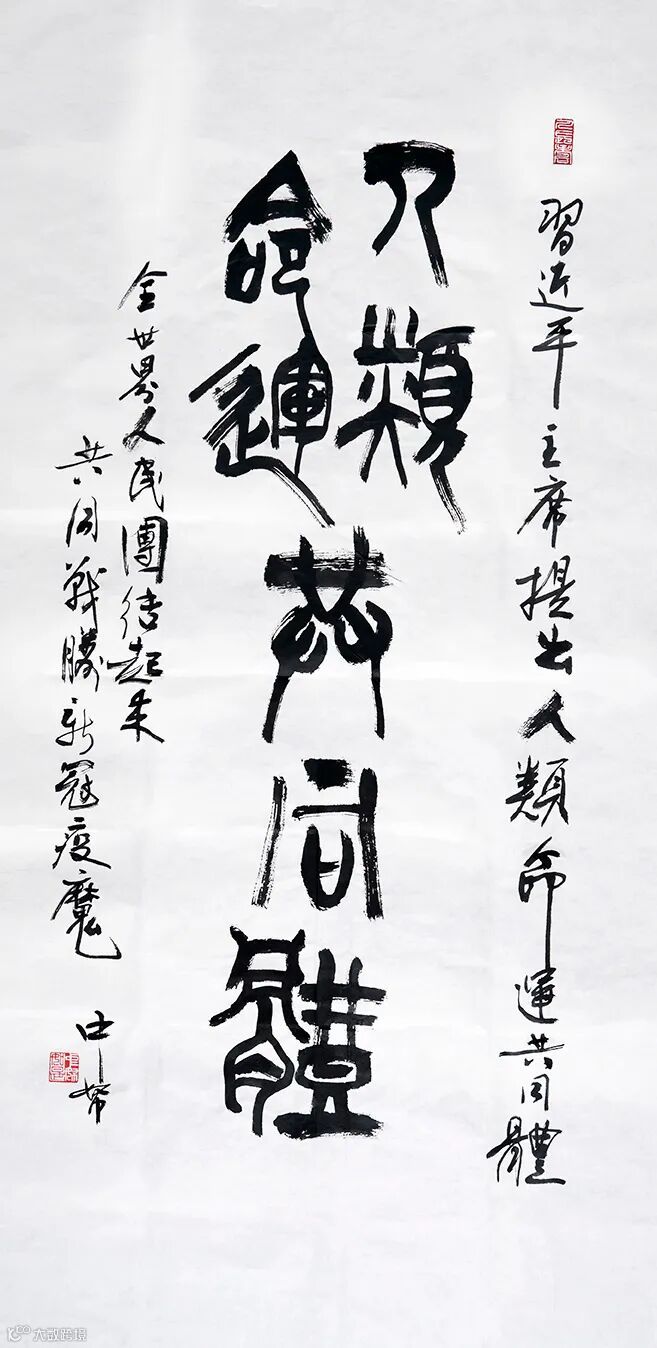 習近平主席提出人類命運共同體
人類
命運
共同體
全世界人民團结起来
共同戰勝新冠疫魔
大數跨境